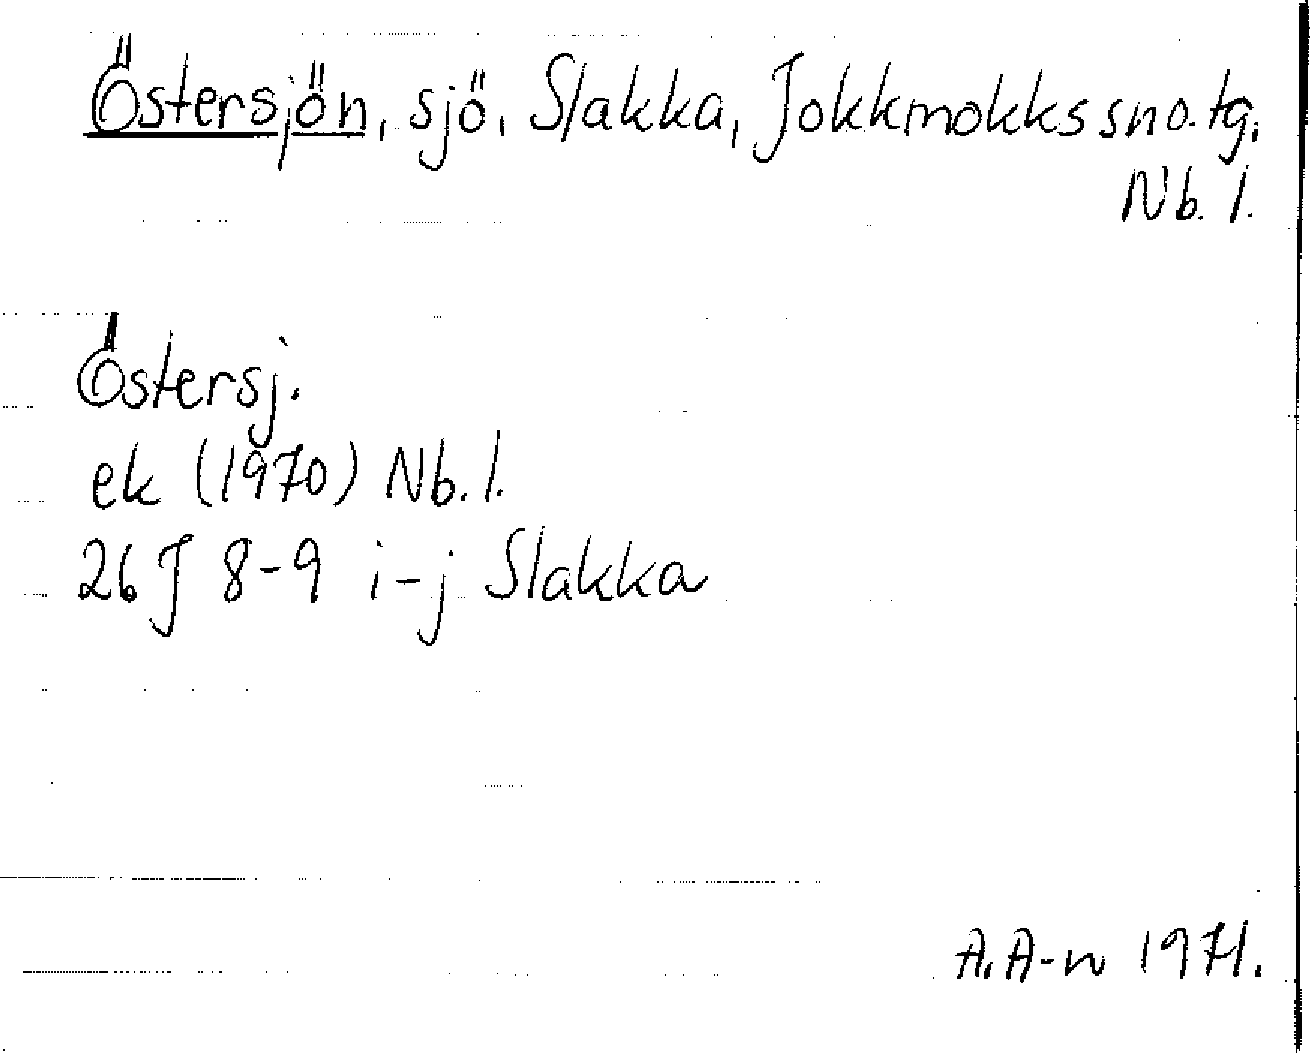 Östersjön, sjö, Slakka, Jokkmokks sno. tg.
Nb. l.
Östersj.
ek (1970) Nb. l.
26 J 8-9 i-j Slakka
A. A-n 1971.